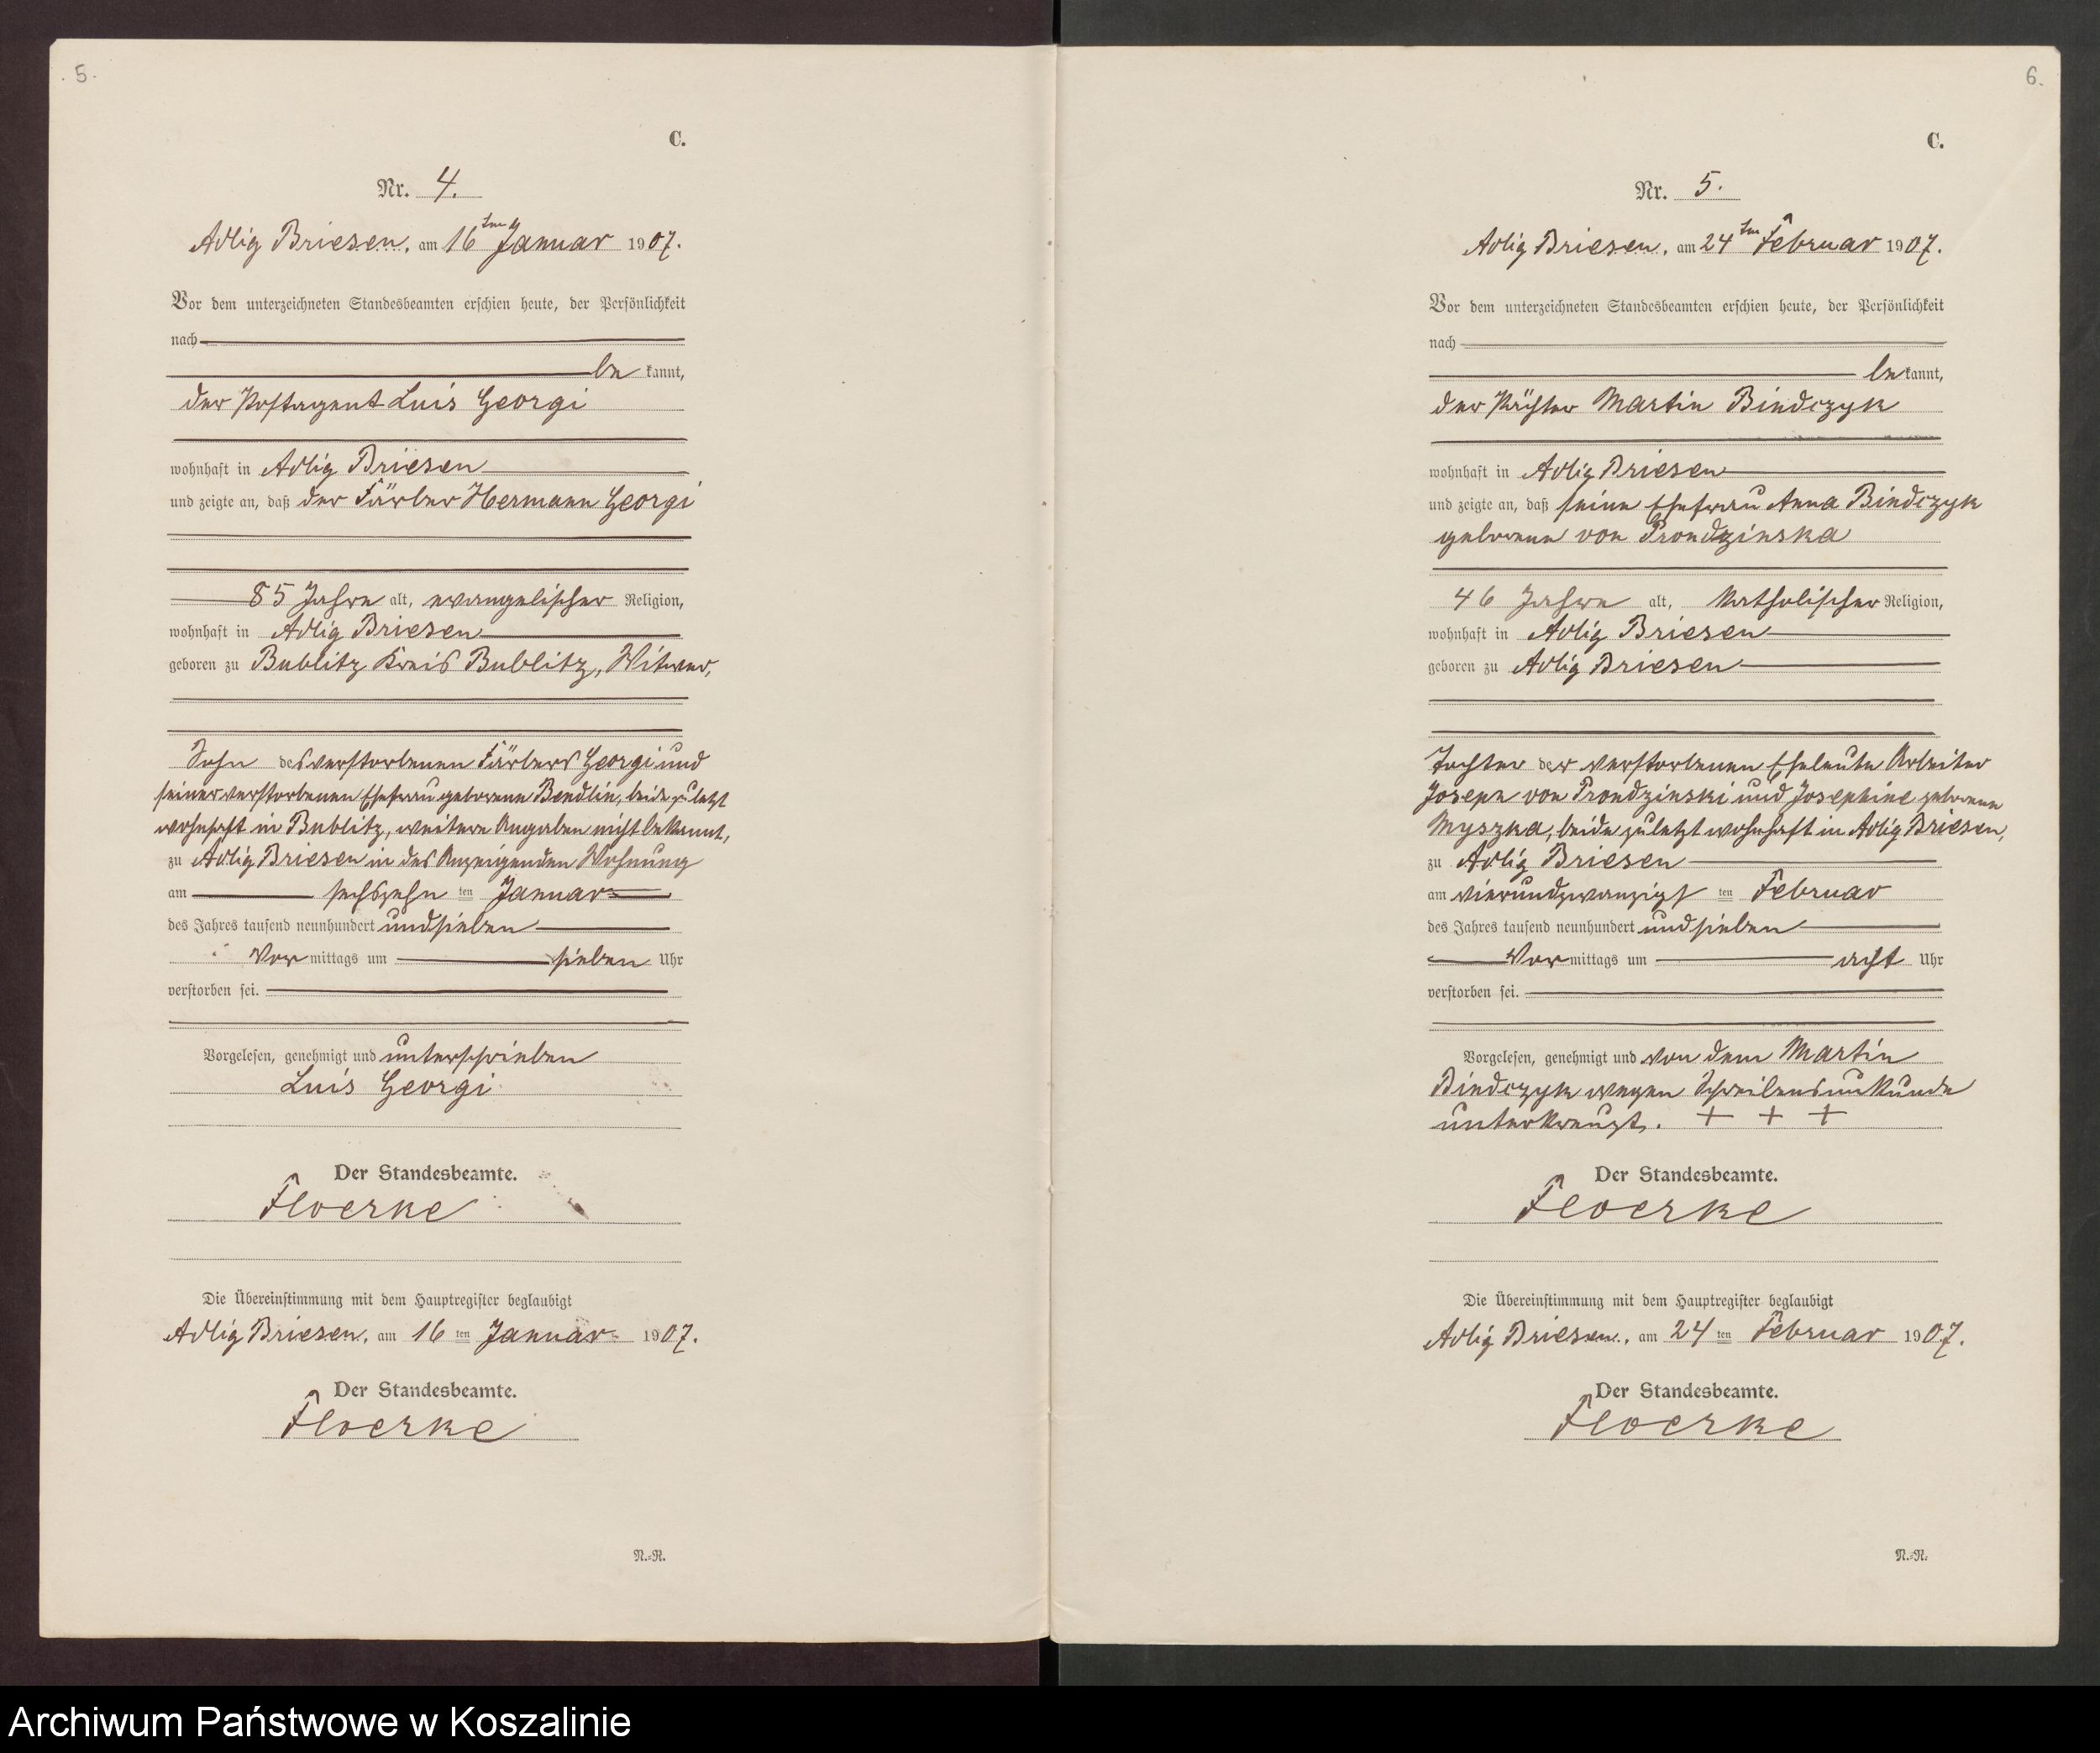 5.
C.
Nr. 4.
Adlig Briesen, am 16ten Januar 1907.
Vor dem unterzeichneten Standesbeamten erschien heute, der Persönlichkeit
nach
be kannt,
der Postagent Luis Georgi
wohnhaft in Adlig Briesen
und zeigte an, daß der Färber Hermann Georgi
85 Jahre alt, evangelischer Religion,
wohnhaft in Adlig Briesen
geboren zu Bublitz Kreis Bublitz, Witwer,
Sohn des verstorbenen Färbers Georgi und
seiner verstorbenen Ehefrau geborene Bendlin, beide zuletzt
wohnhaft in Bublitz, weitere Angaben nicht bekannt,
zu Adlig Briesen in des Anzeigenden Wohnung
am sechszehn ten Januar
des Jahres tausend neunhundert und sieben
Vor mittags um sieben Uhr
verstorben sei.
Vorgelesen, genehmigt und unterschrieben
Luis Georgi
Der Standesbeamte.
Floerke
Die Übereinstimmung mit dem Hauptregister beglaubigt
Adlig Briesen, am 16 ten Januar 1907.
Der Standesbeamte.
Floerke
N.-R.
6.
C.
Nr. 5.
Adlig Briesen, am 24ten Februar 1907.
Vor dem unterzeichneten Standesbeamten erschien heute, der Persönlichkeit
nach
be kannt,
der Pächter Martin Bindczyk
wohnhaft in Adlig Briesen
und zeigte an, daß seine Ehefrau Anna Bindczyk
geborene von Prondzinska
46 Jahre alt, katholischer Religion,
wohnhaft in Adlig Briesen
geboren zu Adlig Briesen
Tochter der verstorbenen Eheleute Arbeiter
Joseph von Prondzinski und Josephine geborene
Myszka, beide zuletzt wohnhaft in Adlig Briesen,
zu Adlig Briesen
am vierundzwanzigst ten Februar
des Jahres tausend neunhundert und sieben
Vor mittags um acht Uhr
verstorben sei.
Vorgelesen, genehmigt und von dem Martin
Bindczyk wegen Schreibensunkunde
unterkreuzt. + + +
Der Standesbeamte.
Floerke
Die Übereinstimmung mit dem Hauptregister beglaubigt
Adlig Briesen, am 24 ten Februar 1907.
Der Standesbeamte.
Floerke
N.-R.
Archiwum Państwowe w Koszalinie